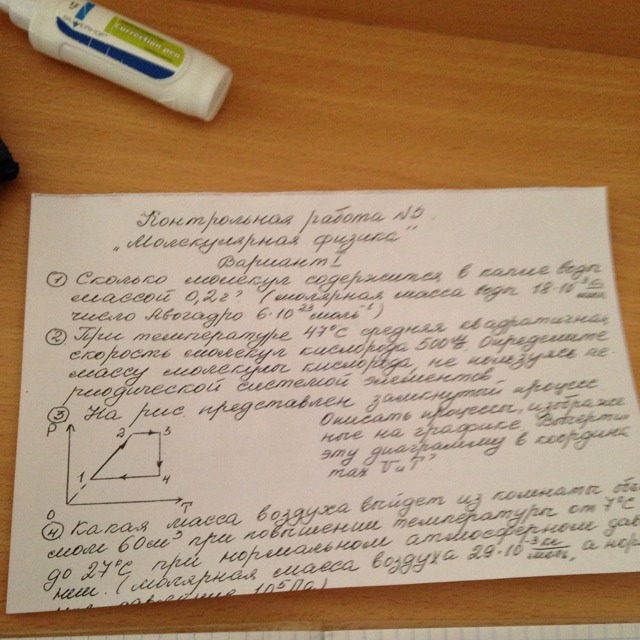 correction pen
Контрольная работа №5
„Молекулярная физика“
Вариант I
① Сколько молекул содержится в капле воды
массой 0,2г? (молярная масса воды 18·10⁻³ кг/моль
число Авогадро 6·10²³ моль⁻¹)
② При температуре 47°С средняя квадратичная
скорость молекул кислорода 500 м/с. Определите
массу молекулы кислорода, не пользуясь пе-
риодической системой элементов.
③ На рис. представлен замкнутый процесс
Описать процессы, изображе
ные на графике. Вычерти
эту диаграмму в координа
тах V и T
P
2 3
1 4
0 T
④ Какая масса воздуха выйдет из комнаты объё
мом 60м³ при повышении температуры от 7°С
до 27°С при нормальном атмосферном дав
нии. (молярная масса воздуха 29·10⁻³ кг/моль, а нор
давление 10⁵ Па)